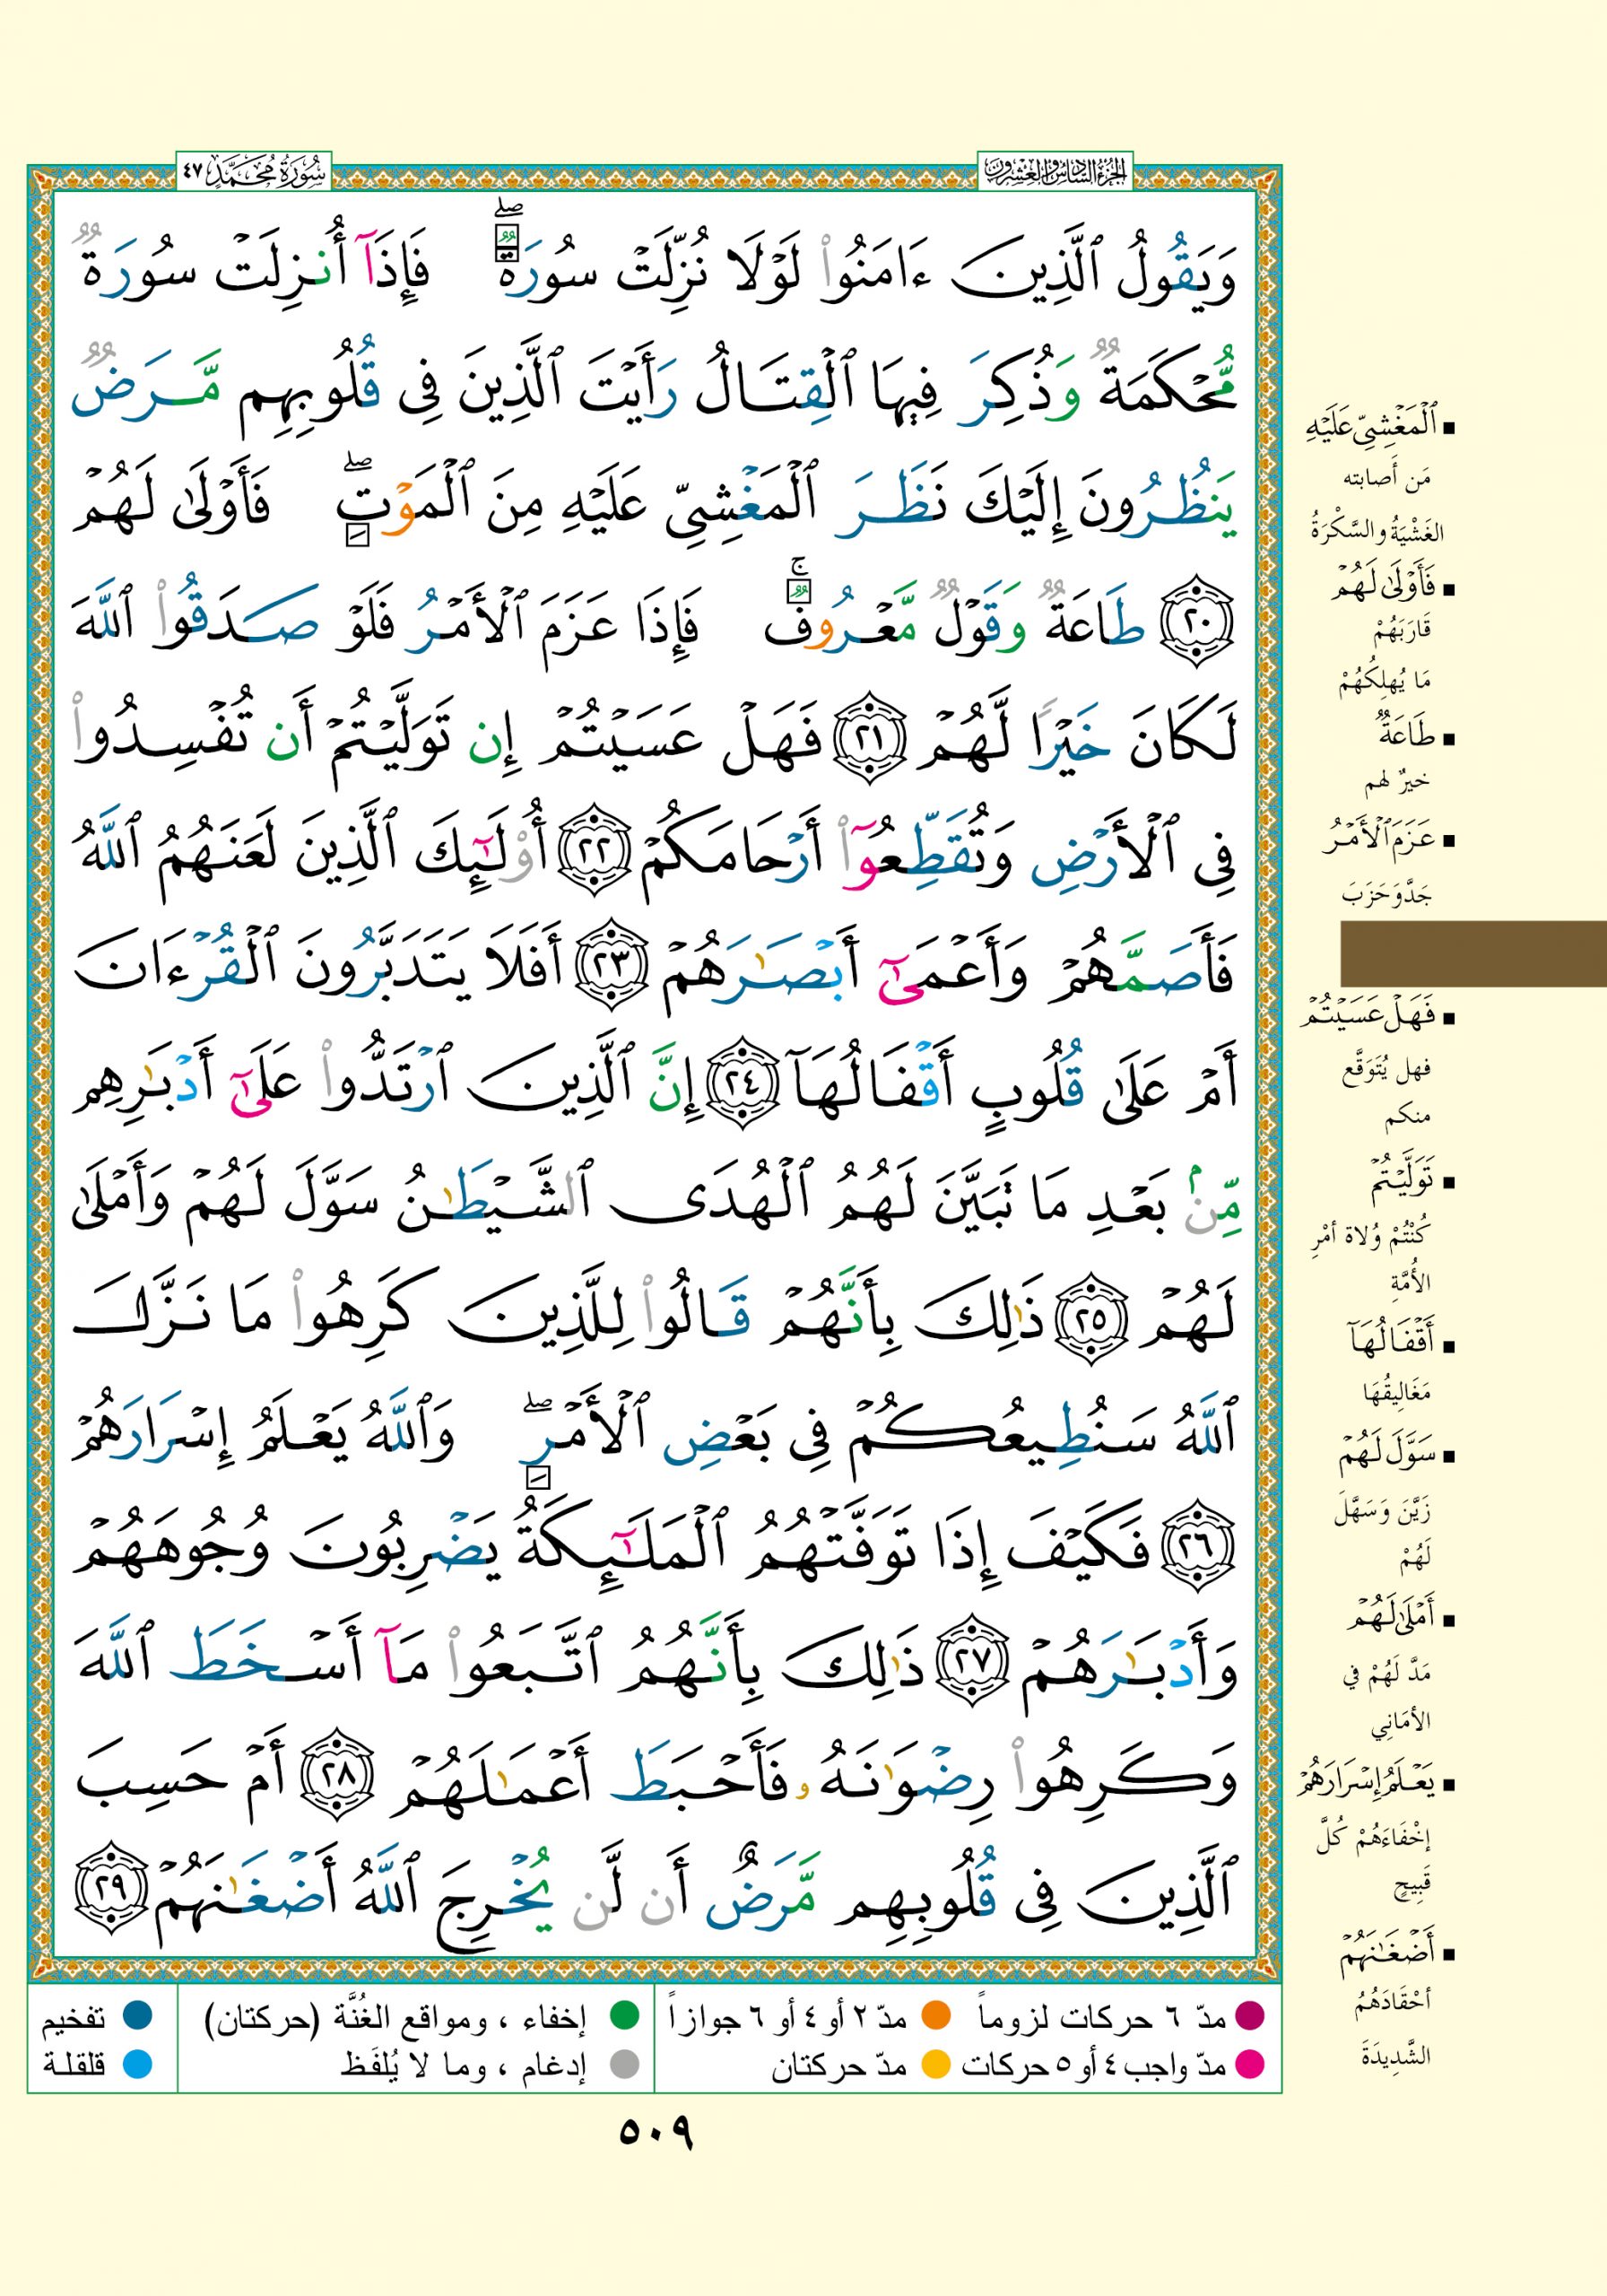 الجزء السادس والعشرون
سُورَةُ مُحَمَّدٍ ٤٧
وَيَقُولُ ٱلَّذِينَ ءَامَنُوا۟ لَوْلَا نُزِّلَتْ سُورَةٌ ۖ فَإِذَآ أُنزِلَتْ سُورَةٌ
مُّحْكَمَةٌ وَذُكِرَ فِيهَا ٱلْقِتَالُ رَأَيْتَ ٱلَّذِينَ فِى قُلُوبِهِم مَّرَضٌ
يَنظُرُونَ إِلَيْكَ نَظَرَ ٱلْمَغْشِىِّ عَلَيْهِ مِنَ ٱلْمَوْتِ ۖ فَأَوْلَىٰ لَهُمْ
٢٠ طَاعَةٌ وَقَوْلٌ مَّعْرُوفٌ ۚ فَإِذَا عَزَمَ ٱلْأَمْرُ فَلَوْ صَدَقُوا۟ ٱللَّهَ
لَكَانَ خَيْرًا لَّهُمْ ٢١ فَهَلْ عَسَيْتُمْ إِن تَوَلَّيْتُمْ أَن تُفْسِدُوا۟
فِى ٱلْأَرْضِ وَتُقَطِّعُوٓا۟ أَرْحَامَكُمْ ٢٢ أُو۟لَٰٓئِكَ ٱلَّذِينَ لَعَنَهُمُ ٱللَّهُ
فَأَصَمَّهُمْ وَأَعْمَىٰٓ أَبْصَٰرَهُمْ ٢٣ أَفَلَا يَتَدَبَّرُونَ ٱلْقُرْءَانَ
أَمْ عَلَىٰ قُلُوبٍ أَقْفَالُهَآ ٢٤ إِنَّ ٱلَّذِينَ ٱرْتَدُّوا۟ عَلَىٰٓ أَدْبَٰرِهِم
مِّنۢ بَعْدِ مَا تَبَيَّنَ لَهُمُ ٱلْهُدَى ٱلشَّيْطَٰنُ سَوَّلَ لَهُمْ وَأَمْلَىٰ
لَهُمْ ٢٥ ذَٰلِكَ بِأَنَّهُمْ قَالُوا۟ لِلَّذِينَ كَرِهُوا۟ مَا نَزَّلَ
ٱللَّهُ سَنُطِيعُكُمْ فِى بَعْضِ ٱلْأَمْرِ ۖ وَٱللَّهُ يَعْلَمُ إِسْرَارَهُمْ
٢٦ فَكَيْفَ إِذَا تَوَفَّتْهُمُ ٱلْمَلَٰٓئِكَةُ يَضْرِبُونَ وُجُوهَهُمْ
وَأَدْبَٰرَهُمْ ٢٧ ذَٰلِكَ بِأَنَّهُمُ ٱتَّبَعُوا۟ مَآ أَسْخَطَ ٱللَّهَ
وَكَرِهُوا۟ رِضْوَٰنَهُۥ فَأَحْبَطَ أَعْمَٰلَهُمْ ٢٨ أَمْ حَسِبَ
ٱلَّذِينَ فِى قُلُوبِهِم مَّرَضٌ أَن لَّن يُخْرِجَ ٱللَّهُ أَضْغَٰنَهُمْ ٢٩
▪ ٱلْمَغْشِىِّ عَلَيْهِ
مَن أَصابته
الغَشْيَةُ والسَّكْرَةُ
▪ فَأَوْلَىٰ لَهُمْ
قَارَبَهُمْ
مَا يُهلِكُهُمْ
▪ طَاعَةٌ
خيرٌ لهم
▪ عَزَمَ ٱلْأَمْرُ
جَدَّ وَحَزَبَ
▪ فَهَلْ عَسَيْتُمْ
فهل يُتَوَقَّع
منكم
▪ تَوَلَّيْتُمْ
كُنْتُمْ وُلاة أمْرِ
الأُمَّةِ
▪ أَقْفَالُهَآ
مَغَالِيقُهَا
▪ سَوَّلَ لَهُمْ
زَيَّنَ وَسَهَّلَ
لَهُمْ
▪ أَمْلَىٰ لَهُمْ
مَدَّ لَهُمْ في
الأمَانِي
▪ يَعْلَمُ إِسْرَارَهُمْ
إخْفَاءَهُمْ كُلَّ
قَبِيحٍ
▪ أَضْغَٰنَهُمْ
أحْقَادَهُمُ
الشَّدِيدَةَ
مدّ ٦ حركات لزوماً ● مدّ ٢ أو ٤ أو ٦ جوازاً ● إخفاء ، ومواقع الغُنَّة (حركتان) ● تفخيم
مدّ واجب ٤ أو ٥ حركات ● مدّ حركتان ● إدغام ، وما لا يُلفَظ ● قلقلة
٥٠٩